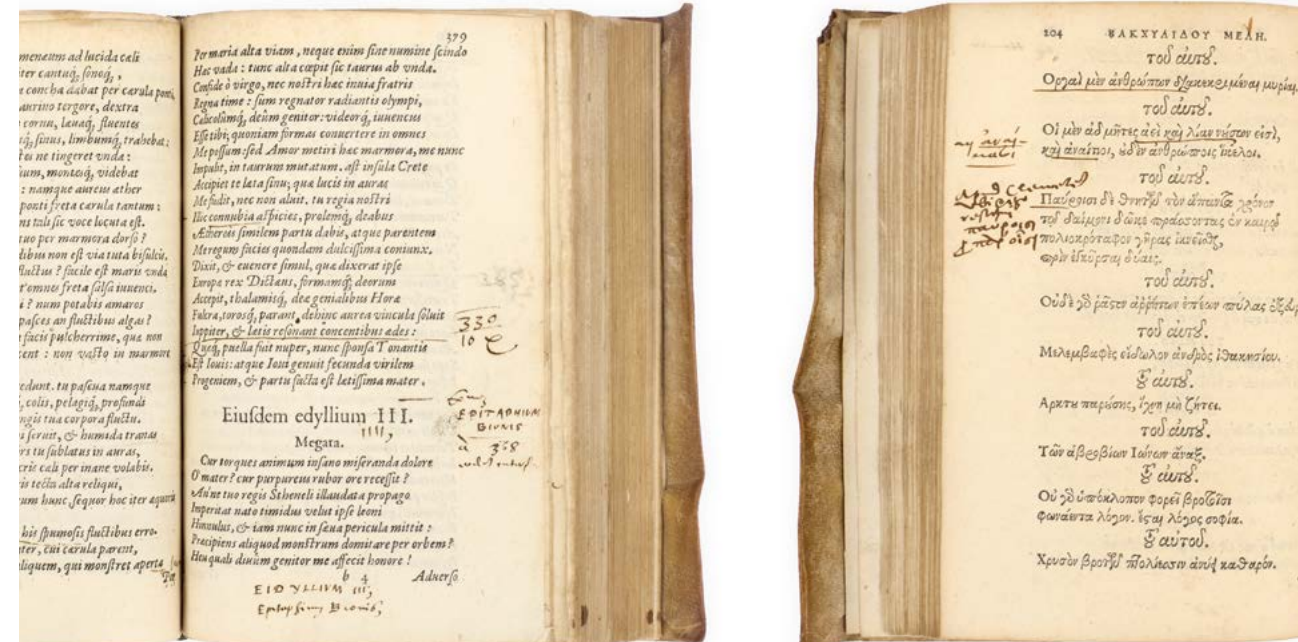 menæum ad lucida cæli
ter cantuq́, sonoq́,
concha dabat per cærula ponti,
aurino tergore, dextra
cornu, læuaq́, fluentes
sinus, limbumq́, trahebat:
ne tingeret vnda:
ium, montesq́, videbat
: namque aureus æther
ponti freta cærula tantum:
ns tali sic voce locuta est.
tuo per marmora dorso?
dibus non est via tuta bisulcis.
fluctus? facile est maris vnda
omnes freta salsa iuuenci.
i? num potabis amaros
pasces an fluctibus algas?
facis pulcherrime, quæ non
cent: non vasto in marmore
cedunt. tu pascua namque
, colis, pelagiq́, profundi
ngis tua corpora fluctu.
seruit, & humida tranas
rs tu sublatus in auras,
cris cæli per inane volabis.
tecta alta reliqui,
um hunc, sequor hoc iter æquoris
his spumosis fluctibus erro.
ter, cui cærula parent,
liquem, qui monstret aperta
Per
379
Per maria alta viam, neque enim sine numine scindo
Hæc vada: tunc alta cœpit sic taurus ab vnda.
Confide ô virgo, nec nostri hæc inuia fratris
Regna time: sum regnator radiantis olympi,
Cælicolûmq́, deûm genitor: videorq́, iuuencus
Esse tibi; quoniam formas conuertere in omnes
Me possum: sed Amor metiri hæc marmora, me nunc
Impulit, in taurum mutatum. ast insula Crete
Accipiet te læta sinu; quæ lucis in auras
Me fudit, nec non aluit. tu regia nostri
Hîc connubia aspicies, prolemq́, deabus
Æthereis similem partu dabis, atque parentem
Me regum facies quondam dulcissima coniunx.
Dixit, & euenere simul, quæ dixerat ipse
Europæ rex Dictæus, formamq́, deorum
Accepit, thalamisq́, deæ genialibus Horæ
Fulcra, torosq́, parant, dehinc aurea vincula soluit
Iuppiter, & lætis resonant concentibus ædes:
Quæq́, puella fuit nuper, nunc sponsa Tonantis
Est Iouis: atque Ioui genuit fecunda virilem
Progeniem, & partu facta est lætissima mater.
330
10
Eiusdem edyllium III.
IIII,
Megara.
EPITAPHIUM
BIONIS
à 368
Cur torques animum insano miseranda dolore
O mater? cur purpureus rubor ore recessit?
An'ne tuo regis Stheneli illaudata propago
Imperitat nato timidus velut ipse leoni
Hinnulus, & iam nunc in sæua pericula mittit:
Præcipiens aliquod monstrum domitare per orbem?
Heu quali diuum genitor me affecit honore!
b 4
Aduerso
EIDYLLIVM III,
Epitaphium Bionis,
204 ΒΑΚΧΥΛΙΔΟΥ ΜΕΛΗ.
τοῦ αὐτοῦ.
Ὀργαὶ μὲν ἀνθρώπων διακεκριμέναι μυρίαι.
τοῦ αὐτοῦ.
Οἱ μὲν ἀδμῆτες ἀεὶ καὶ λίαν νήσων εἰσὶ,
καὶ ἀναίτιοι, οὐδὲν ἀνθρώποις ἴκελοι.
τοῦ αὐτοῦ.
Παύροισι δὲ θνητῶν τὸν ἅπαντα χρόνον
τῷ δαίμονι δῶκε πράσσοντας ἐν καιρῷ
πολιοκρόταφον γῆρας ἱκνεῖσθαι,
πρὶν ἐγκύρσαι δύαις.
παύροισι
τοῦ αὐτοῦ.
Οὐδὲ γὰρ ῥᾷστον ἀῤῥήτων ἐπέων πύλας
τοῦ αὐτοῦ.
Μελαμβαφὲς εἴδωλον ἀνδρὸς ἰθακησίου.
τοῦ αὐτοῦ.
Ἄρκτου παρούσης, ἴχνη μὴ ζήτει.
τοῦ αὐτοῦ.
Τῶν ἁβροβίων Ἰώνων ἄναξ.
τοῦ αὐτοῦ.
Οὐ γὰρ ὑπόκλοπον φορεῖ βροτοῖσι
φωνάεντα λόγον. ἔσται λόγος σοφία.
τοῦ αὐτοῦ.
Χρυσὸν βροτῶν
καθαρόν.